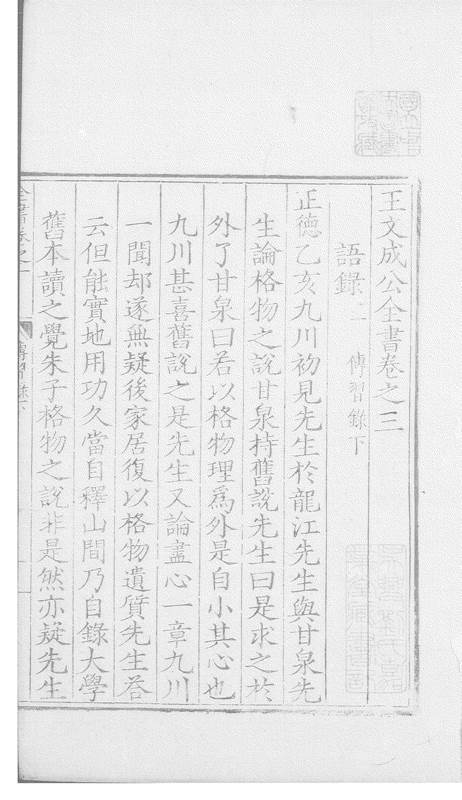 王文成公全書卷之三
語錄二 傳習錄下
正德乙亥九川初見先生於龍江先生與甘泉先
生論格物之說甘泉持舊說先生曰是求之於
外了甘泉曰若以格物理為外是自小其心也
九川甚喜舊說之是先生又論盡心一章九川
一聞却遂無疑後家居復以格物遺質先生荅
云但能實地用功久當自釋山間乃自錄大學
舊本讀之覺朱子格物之說非是然亦疑先生
全書卷之
傳習錄下